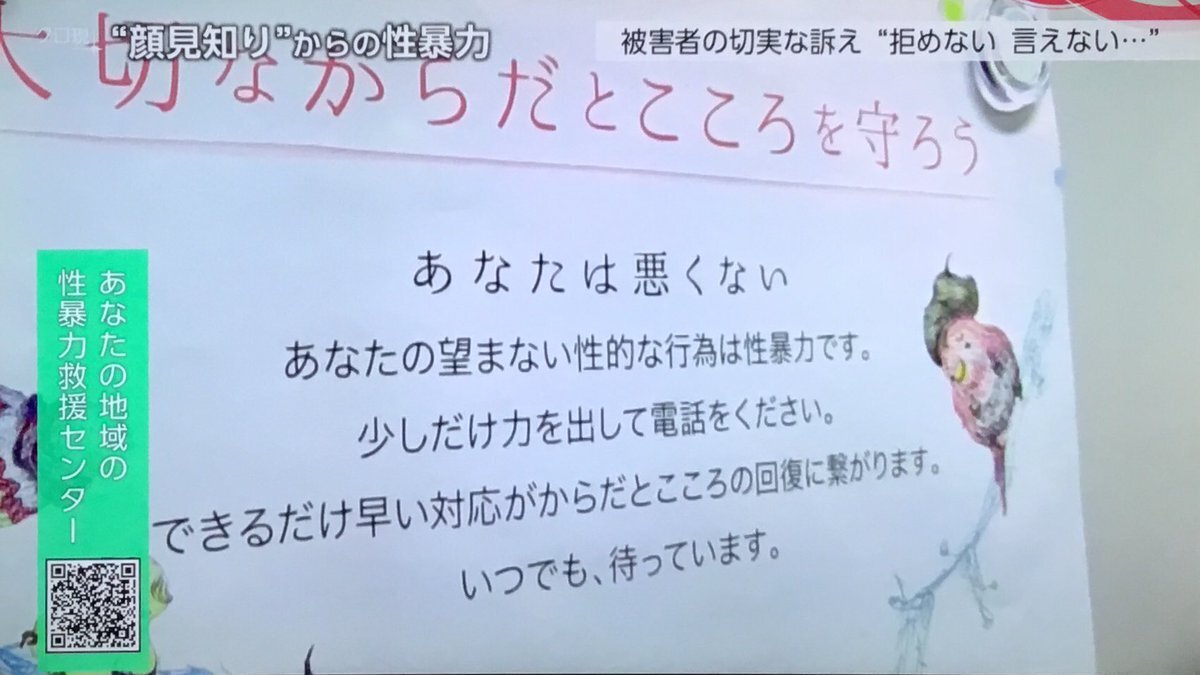 クロ現
“顔見知り”からの性暴力
被害者の切実な訴え “拒めない 言えない…”
大切なからだとこころを守ろう
あなたは悪くない
あなたの望まない性的な行為は性暴力です。
少しだけ力を出して電話をください。
できるだけ早い対応がからだとこころの回復に繋がります。
いつでも、待っています。
あなたの地域の
性暴力救援センター